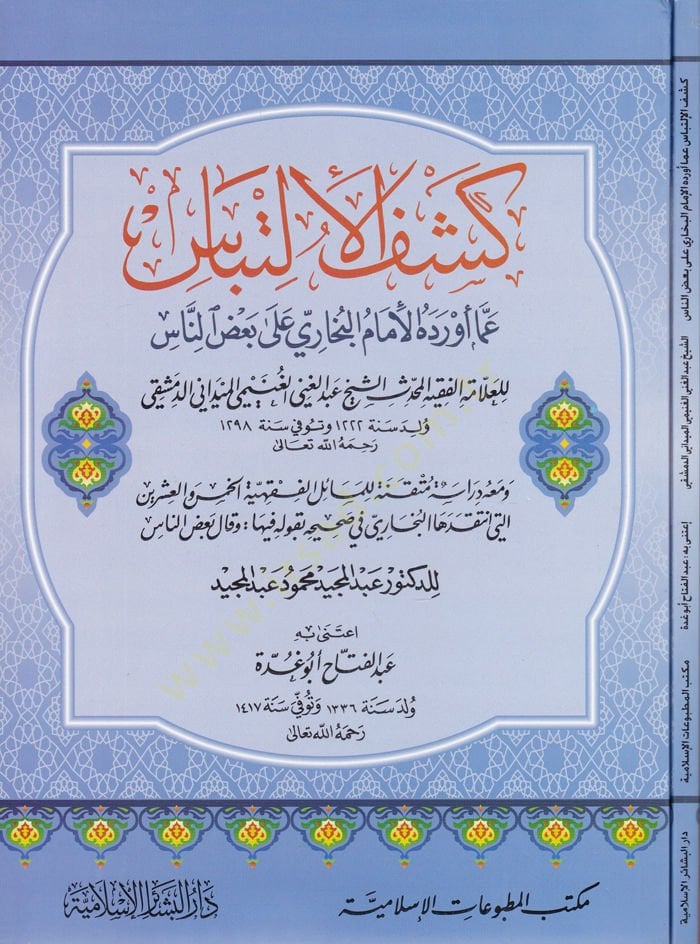 كَشْفُ الِالْتِبَاسِ
عَمَّا أَوْرَدَهُ الْإِمَامُ الْبُخَارِيُّ عَلَى بَعْضِ النَّاسِ
للعلامة الفقيه المحدث الشيخ عبد الغني الغنيمي الميداني الدمشقي
وُلد سنة ١٢٢٢ وتوفي سنة ١٢٩٨
رحمه الله تعالى
ومعه دراسة متقنة للمسائل الفقهية الخمس والعشرين
التي انتقدها البخاري في صحيحه بقوله فيها: وقال بعض الناس
للدكتور عبد المجيد محمود عبد المجيد
اعتنى به
عبد الفتاح أبو غدة
وُلد سنة ١٣٣٦ وتُوفي سنة ١٤١٧
رحمه الله تعالى
مكتب المطبوعات الإسلامية
دار البشائر الإسلامية
كشف الإلتباس عما أورده الإمام البخاري على بعض الناس
الشيخ عبد الغني الغنيمي الميداني الدمشقي
إعتنى به: عبد الفتاح أبو غدة
مكتب المطبوعات الإسلامية
دار البشائر الإسلامية